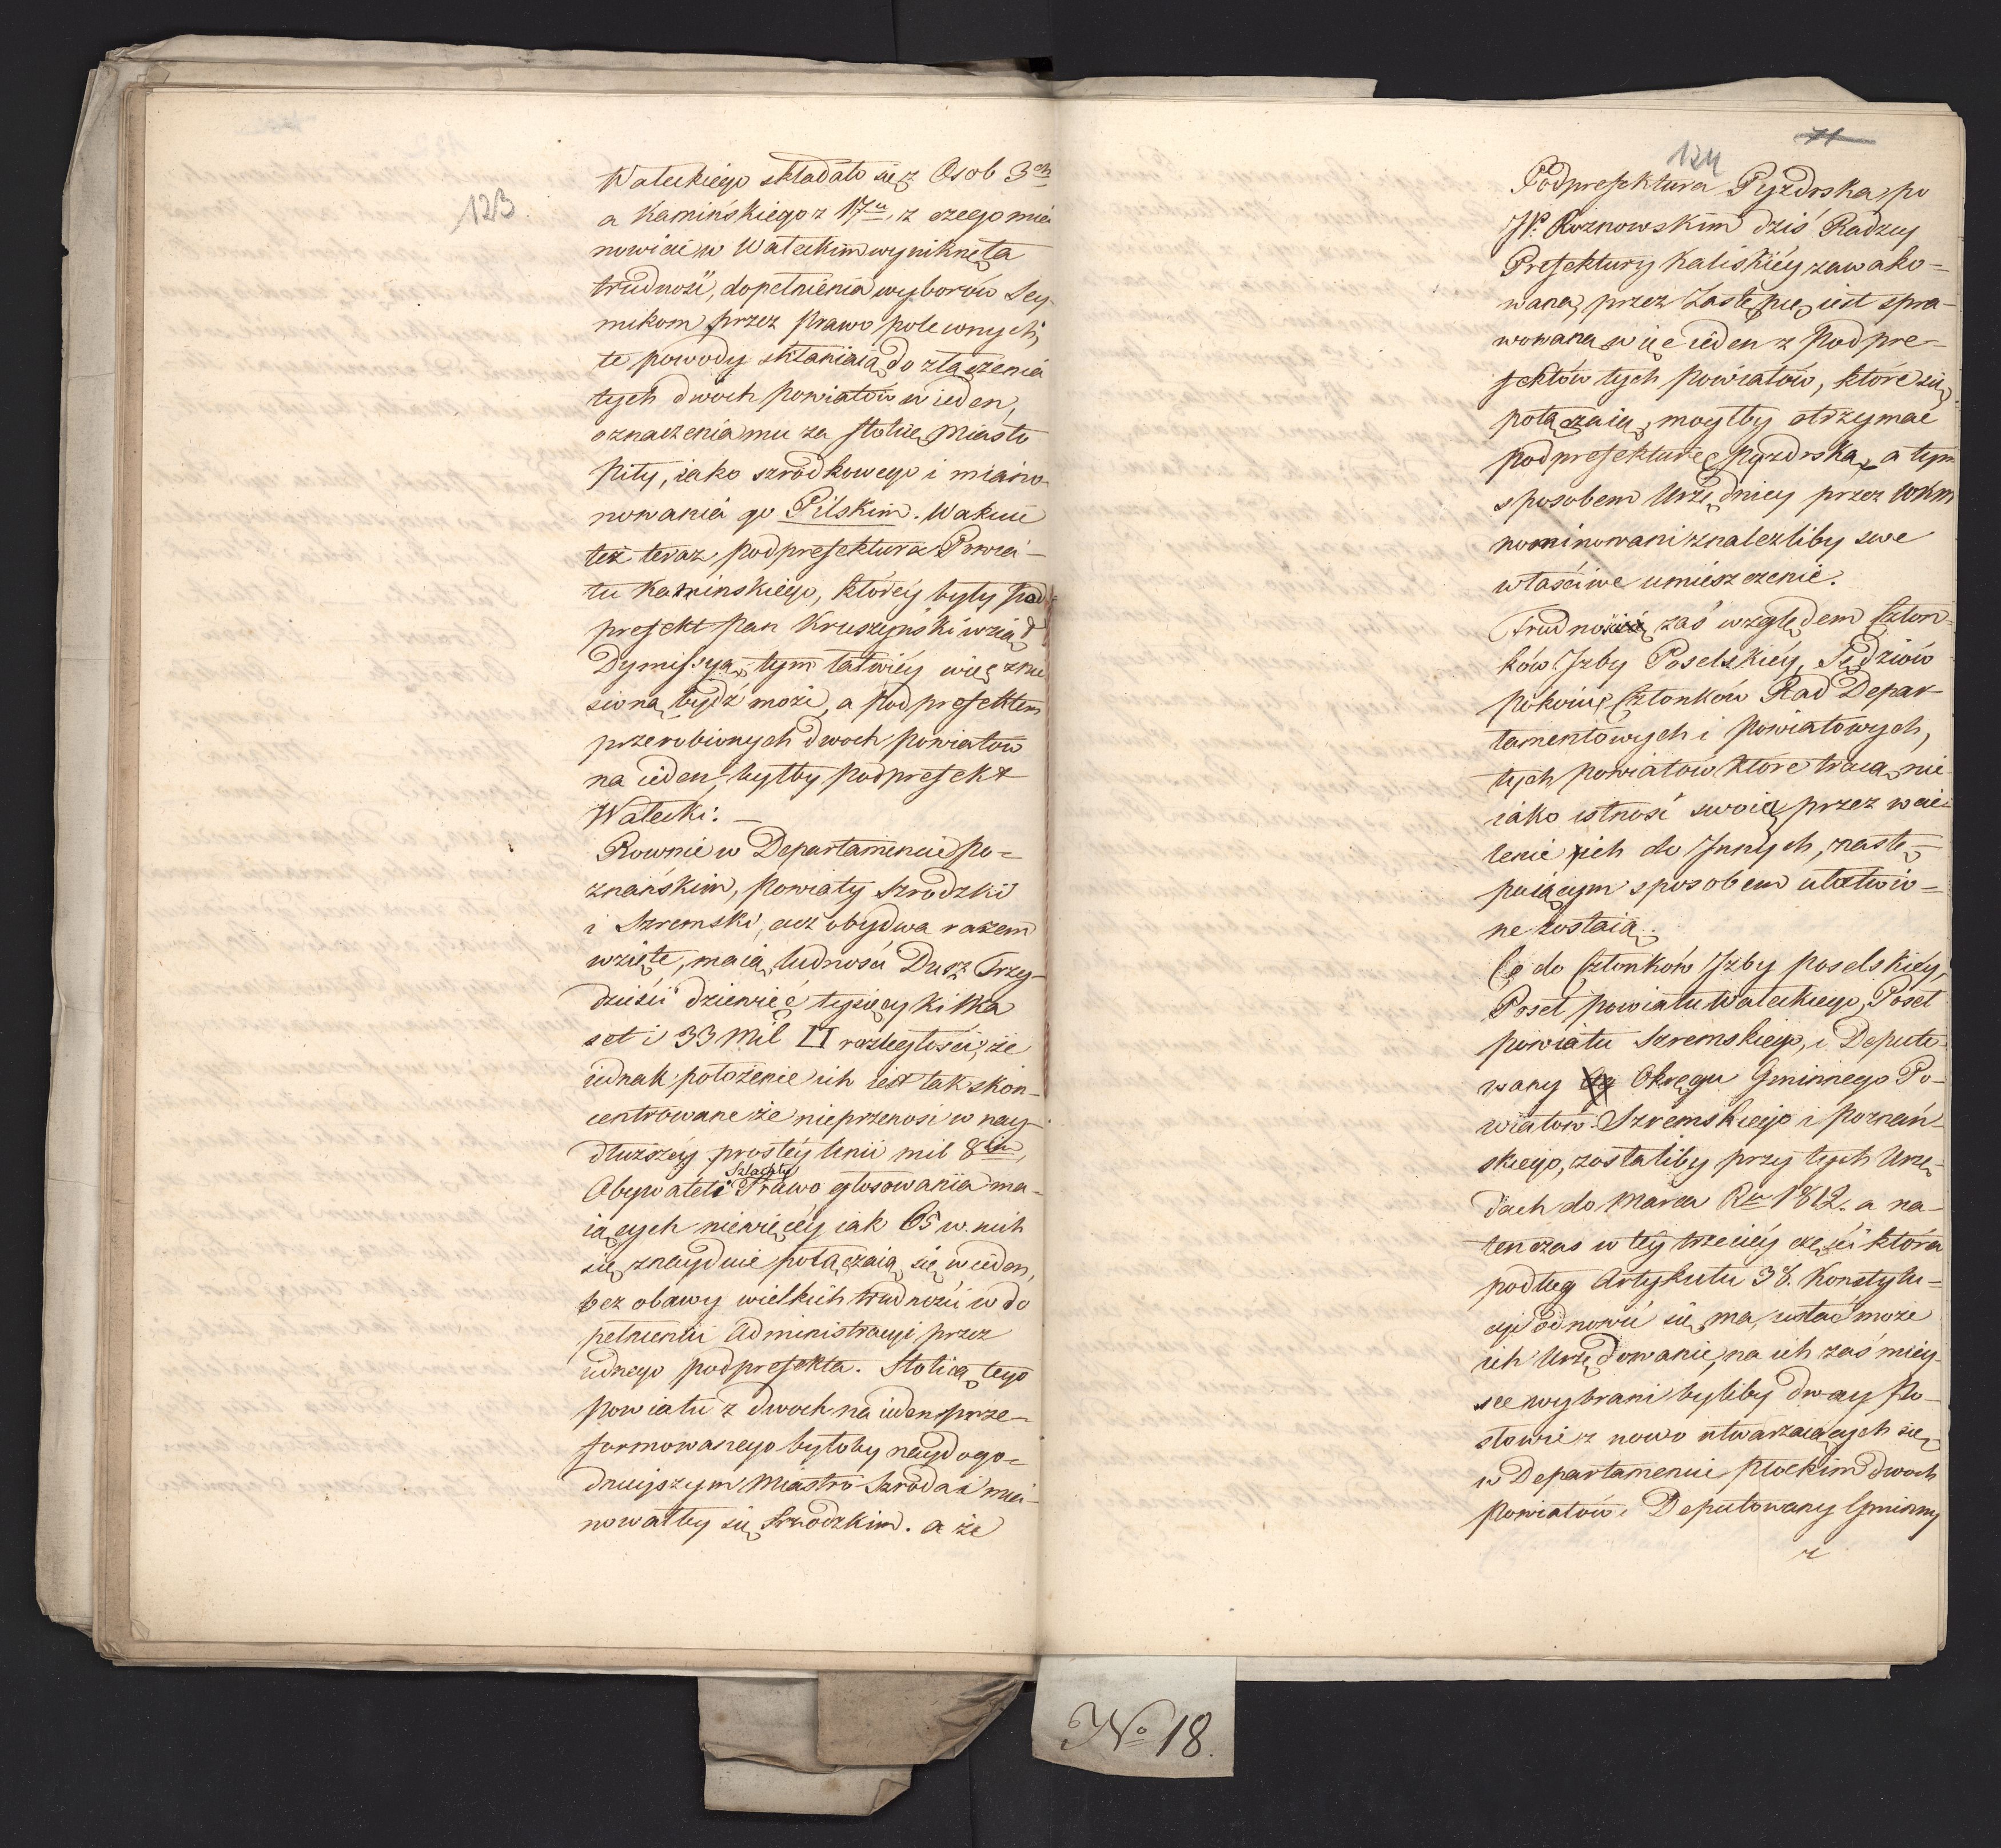 123.
Wałeckiego składało się z Osob 3ch
a Kamińskiego z 17u, z czego mia
nowicie w Wałeckim wyniknęła
trudność, dopełnienia wyborów Sey-
mikom przez prawo poleconych,
te powody skłaniaią do złączenia
tych dwóch powiatów w ieden,
oznaczenia mu za stolicę Miasto
Piły, iako szrodkowego i miano-
nowania go Pilskim. Wakuie
też teraz podprefektura Powia-
tu Kamińskiego, któréy były Pod
prefekt Pan Kruszyński wziął
Dymissyą, tym łatwiéy więc znie
siona być może, a Podprefektem
przerobionych dwoch powiatów
na ieden, byłby podprefekt
Wałecki. —
Rownie w Departamencie Po-
znańskim, powiaty Szrodzki
i Szremski, acz obydwa razem
wzięte, maią ludności Dusz Trzy-
dzieści dziewięć tysięcy kilka
set i 33 Mil □ rozległości, że
iednak położenie ich iest tak skon-
centrowane że nieprzenosi w nay-
dłuższéy prostéy linii mil 8iu,
Szlachty
Obywateli Prawo głosowania ma-
iących niewięcéy iak 65 w nich
się znayduie połączaią się w ieden,
bez obawy wielkich trudności w do
pełnieniu Administracyi przez
iednego podprefekta. Stolicą tego
powiatu z dwoch na ieden prze-
formowanego byłoby naydogo-
dnieyszym Miasto Szroda i mia-
nowałby się Szrodzkim. a że
71
124
Podprefektura Pyzdrska po
JP. Koznowskim dziś Radzcy
Prefektury Kaliskiéy zawako-
waną, przez Zastępcę iest spra-
wowana, więc ieden z Podpre-
fektów tych powiatów, które się
połączaią, mógłby otrzymać
podprefekturę Pyzdrską, a tym
sposobem Urzędnicy przez WKM
nominowani znaleźliby swe
właściwe umieszczenie.
Trudności zaś względem Człon-
ków Izby Poselskiéy, Sędziów
pokoiu, Członków Rad Depar-
tamentowych i Powiatowych,
tych powiatów które tracą nie
iako istność swoią przez wcie-
lenie ich do Innych, nastę-
puiącym sposobem ułatwio-
ne zostaią.
Co do Członków Izby poselskiéy,
Poseł powiatu Wałeckiego, Poseł
powiatu Szremskiego, i Deputo
wany Okręgu Gminnego Po-
wiatów Szremskiego i Poznań-
skiego, zostaliby przy tych Urzę-
dach do Marca Ru 1812. a na-
tenczas w téy trzeciéy części która
podług Artykułu 38. Konstytu-
cyi odnowić się ma, ustać może
ich Urzędowanie, na ich zaś miey-
sce wybrani byliby dway Po-
słowie z nowo utwarzaiących się
w Departamencie Płockim dwoch
Powiatów i Deputowany Gminny
z
No 18.